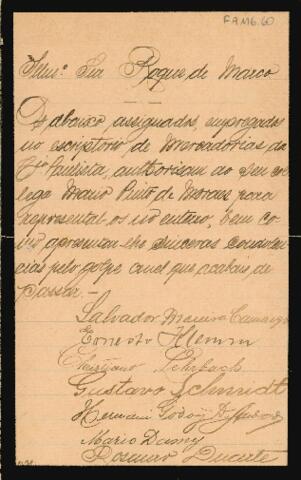 FAMG.60
Illmº. Snr Roque de Marco
Os abaixo assignados, empregados
no escriptorio de Mercadorias da
Cia Paulista, authorisam ao seu col-
lega Mario Pinto de Moraes para
represental-os no enterro, bem co-
mo apresentar-lhe sinceras condolen-
cias pelo golpe cruel que acabais de
passar.—
Salvador Camargo
Ernesto Klemm
Christiano Lehrbach
Gustavo Schmidt
Hermani Godoy
Mario Damy
Duarte